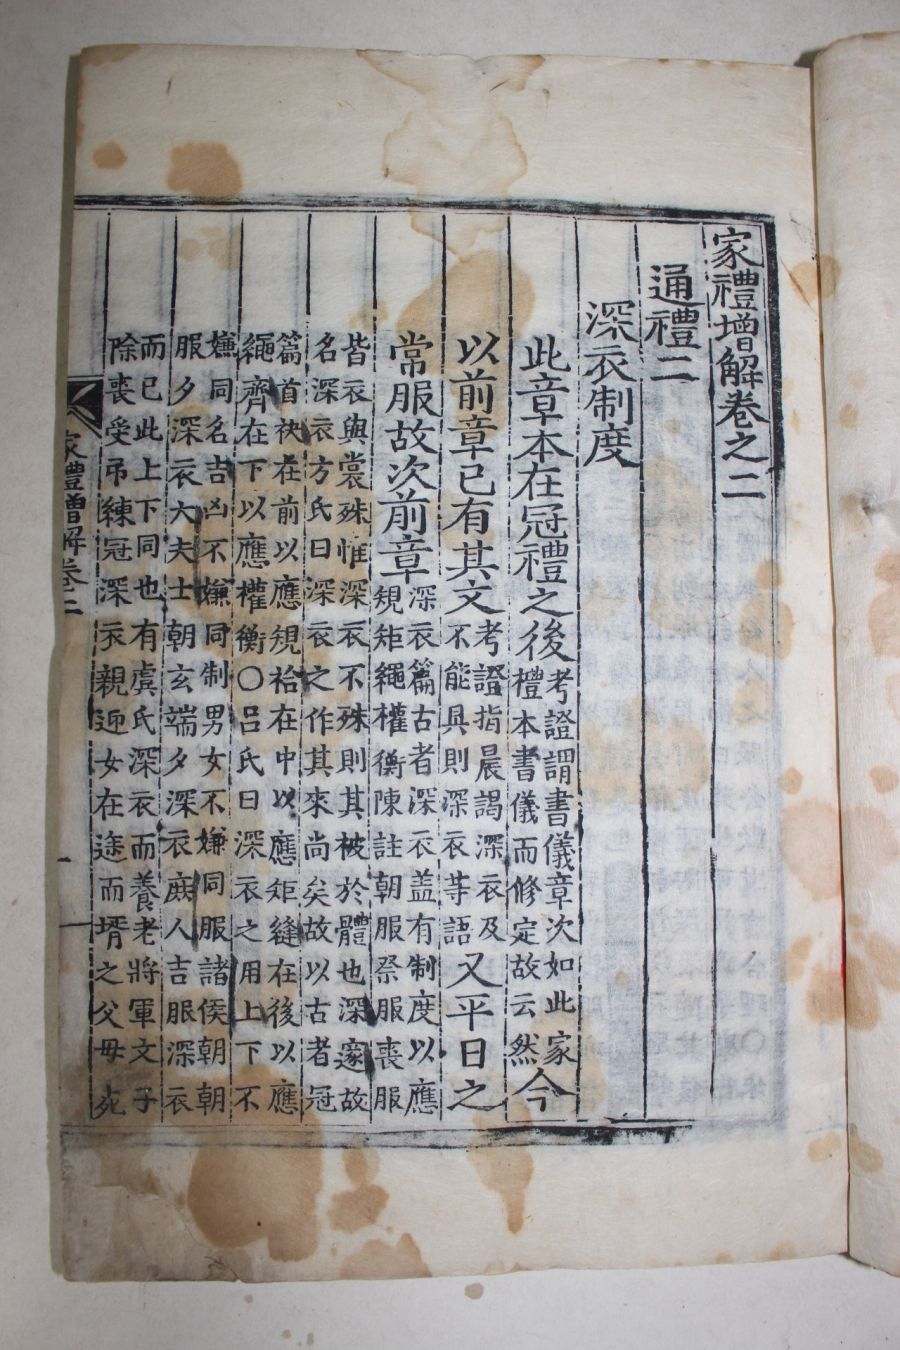 家禮增解卷之二
通禮二
深衣制度
此章本在冠禮之後考證謂書儀章次如此家
禮本書儀而修定故云然今
以前章已有其文考證指晨謁深衣及
不能具則深衣等語又平日之
常服故次前章深衣篇古者深衣盖有制度以應
規矩繩權衡陳註朝服祭服喪服
皆衣與裳殊惟深衣不殊則其被於體也深邃故
名深衣方氏曰深衣之作其來尚矣故以古者冠
篇首袂在前以應規袷在中以應矩縫在後以應
繩齊在下以應權衡〇呂氏曰深衣之用上下不
嫌同名吉凶不嫌同制男女不嫌同服諸侯朝朝
服夕深衣大夫士朝玄端夕深衣庶人吉服深衣
而已此上下同也有虞氏深衣而養老將軍文子
除喪受弔練冠深衣親迎女在途而壻之父母死
家禮增解卷二